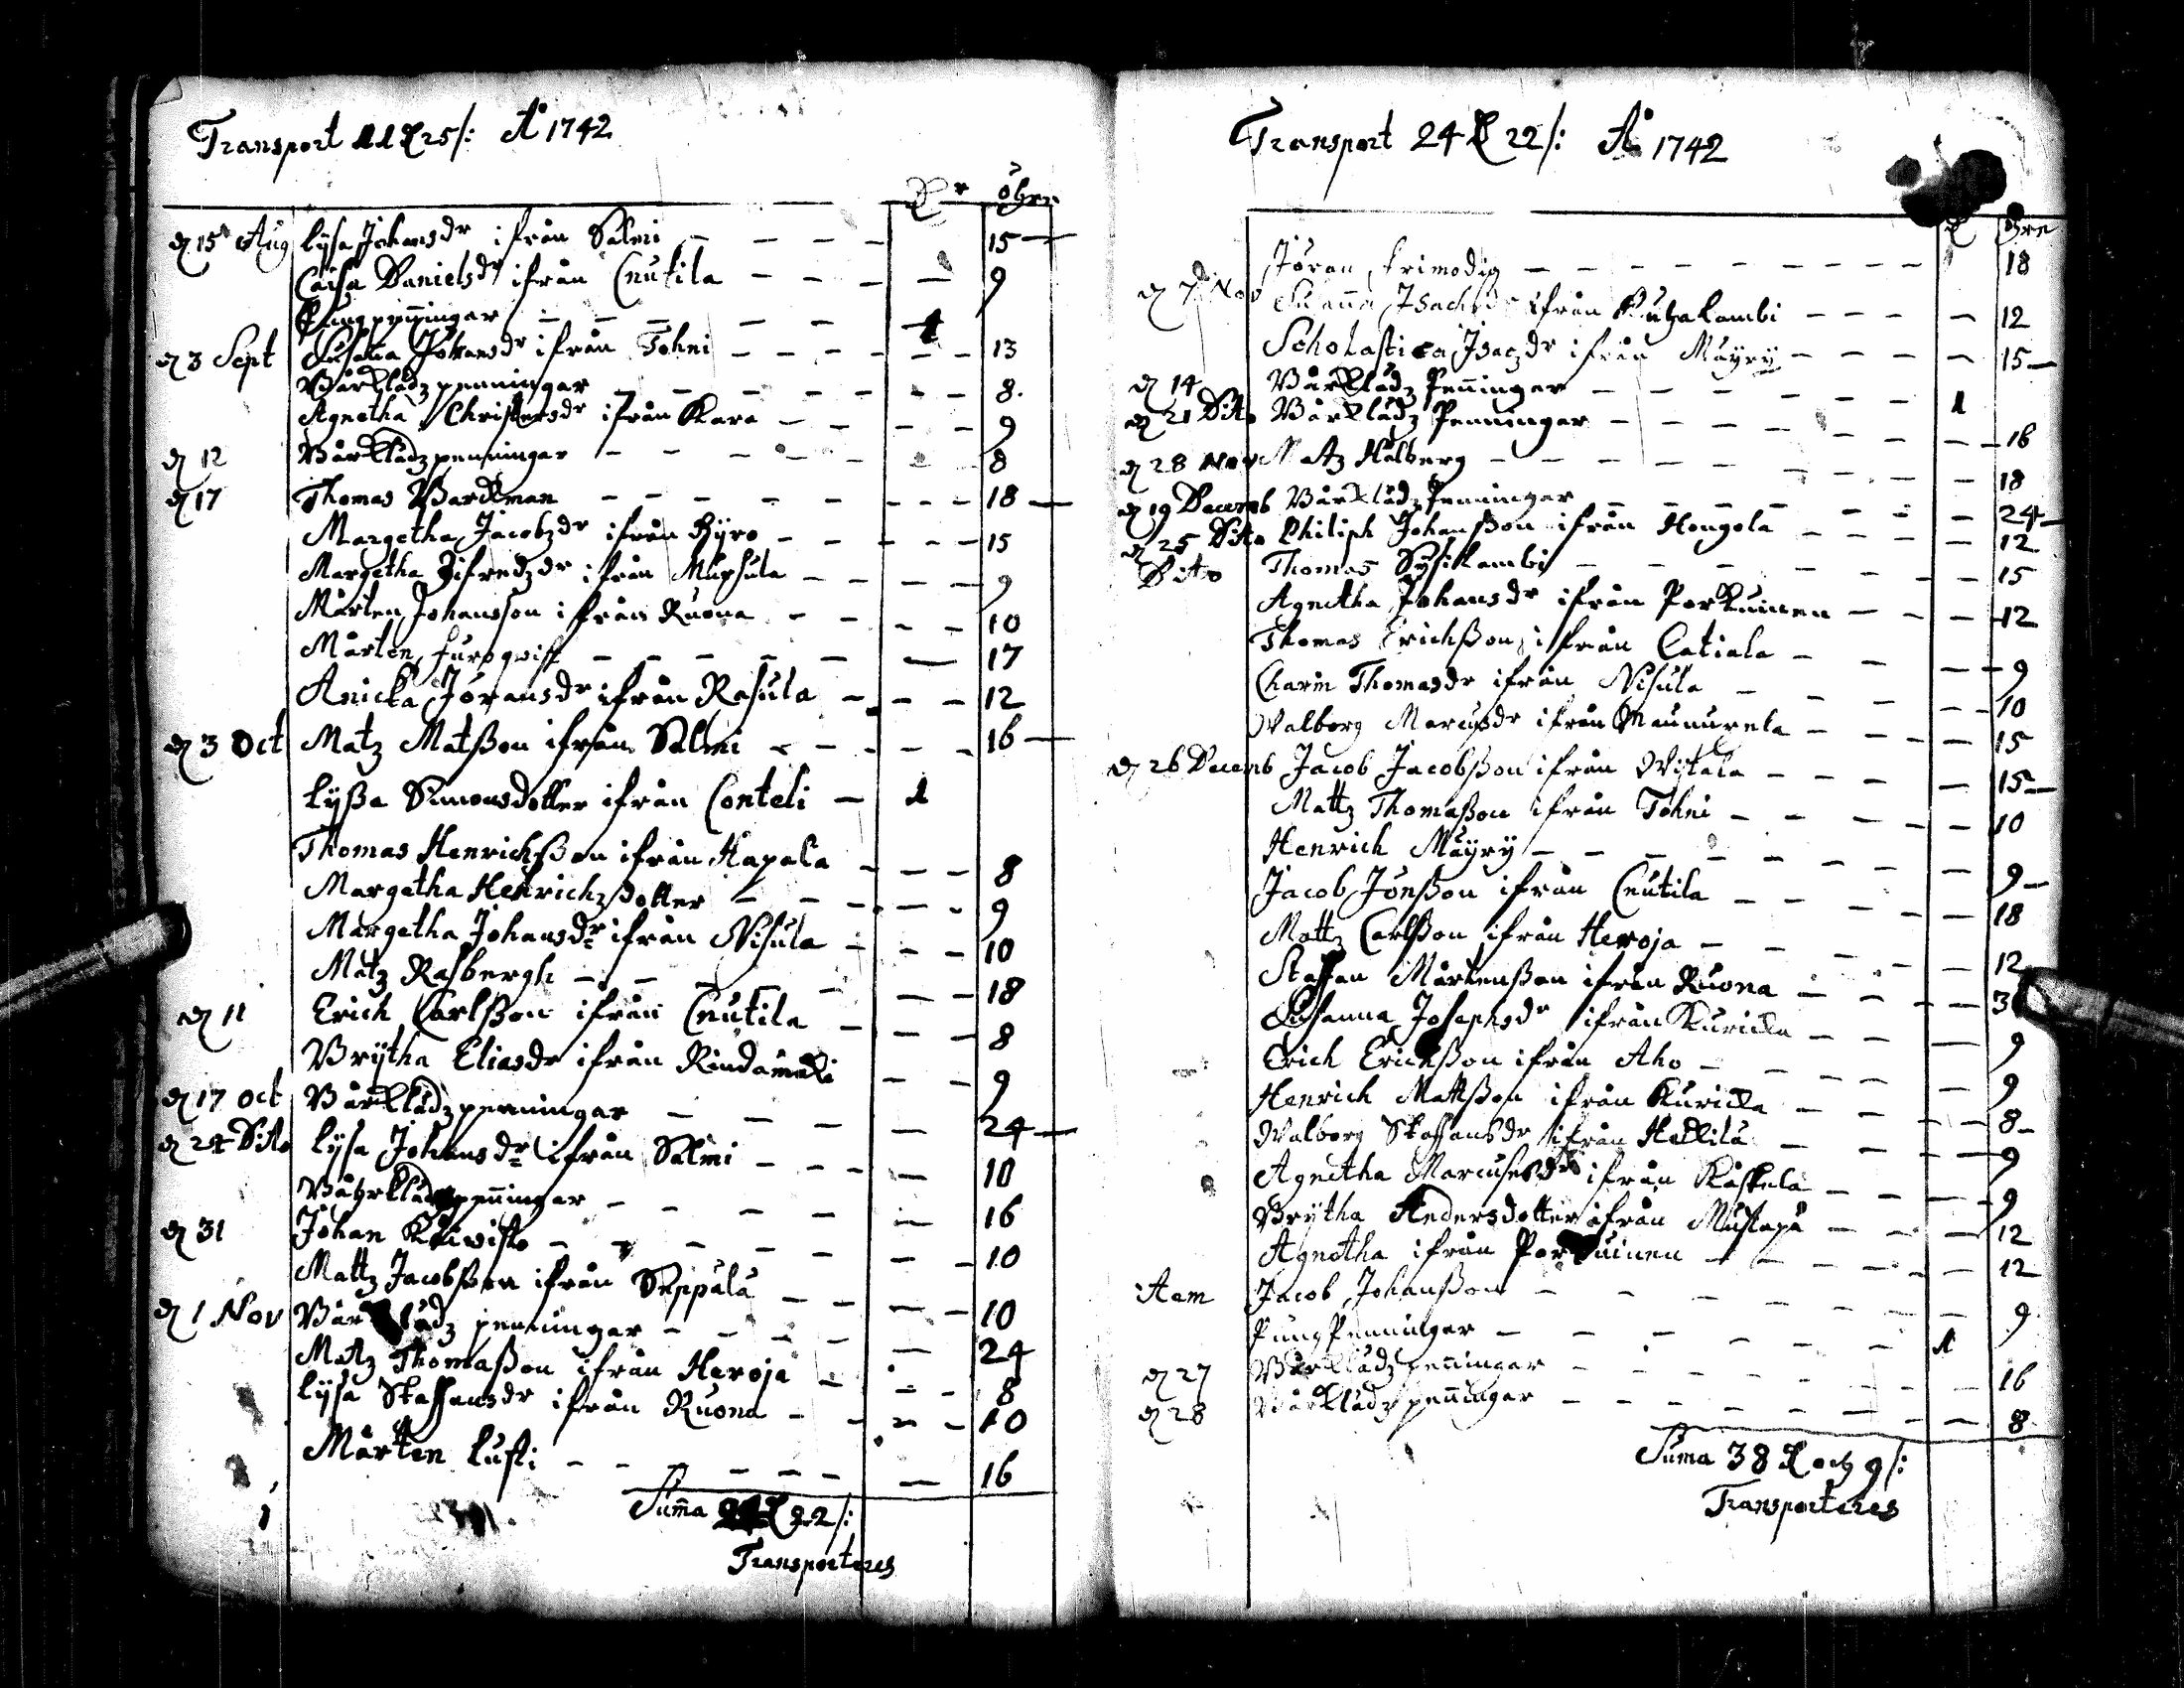 Transport 11 D 25/: Aº 1742
Dr öhre
d 15 Aug Lysa Johansdr ifrån Salmi - - - - 15 -
Caisa Danielsdr ifrån Cnutila - - - - 9
Pungpenningar - - - - - 1
d 3 Sept Susanna Johansdr ifrån Tohni - - - - - - 13
Bårklädz penningar - - - - - - 8.
Agnetha Christersdr ifrån Kara - - - - 9
d 12 Bårklädz penningar - - - - - - 8
d 17 Thomas Barckman - - - - - - - 18 -
Margetha Jacobzdr ifrån Hyro - - - - - 15
Margetha Zifredzdr ifrån Mupsula - - - - 9
Mårten Johansson ifrån Ruona - - - - 10
Mårten Furuqwist - - - - - - 17
Anicka Jöransdr ifrån Rasula - - - 12
d 3 Oct Matz Matsson ifrån Salmi - - - - 16 -
Lyßa Simonsdotter ifrån Conteli - 1
Thomas Henrichßon ifrån Hapala - - - 8
Margetha Henrichzdotter - - - - - 9
Margetha Johansdr ifrån Nisula - - - 10
Matz Rasbergh - - - - - - 18
d 11 Erich Carlßon ifrån Cnutila - - - 8
Brytha Eliasdr ifrån Rindamäki - - 9
d 17 Oct Bårklädz penningar - - - - - 24 -
d 24 Dito Lysa Johansdr ifrån Salmi - - - - - 10
Båhrklädzpenningar - - - - - 16
d 31 Johan Koiwisto - - - - - - - 10
Mattz Jacobßon ifrån Seppälä - - - - 10
d 1 Nov Bårklädz penningar - - - - - 24
Matz Thomaßon ifrån Heroja - - - 8
Lysa Staffansdr ifrån Ruona - - - - 10
Mårten Lusti - - - - - - - 16
Summa 24 D 22/:
Transporteres
Transport 24 D 22/: Aº 1742
D öhre
Jöran Frimodig - - - - - - - - - 18
d 7 Nov Susanna Isachsdr ifrån Kuhalambi - - - - 12
Scholastica Isaczdr ifrån Mäyry - - - - - 15 -
d 14 Bårklädz Penningar - - - - - - 1
d 21 Dito Bårklädz Penningar - - - - - - - 16
d 28 Nov Matz Halberg - - - - - - - - 18
d 19 Decemb Bårklädz Penningar - - - - - - - 24 -
d 25 Dito Philiph Johanßon ifrån Hongola - - - - - 12
Dito Thomas Sysilambi - - - - - - - 15
Agnetha Johansdr ifrån Porkuinen - - - - 12
Thomas Erichßon ifrån Catiala - - - - 9
Charin Thomasdr ifrån Nisula - - - - - 10
Walborg Marcusdr ifrån Maunurela - - - - - 15
d 26 Decemb Jacob Jacobßon ifrån Witala - - - - 15 -
Mattz Thomaßon ifrån Tohni - - - - - 10
Henrich Mäyry - - - - - - - 9 -
Jacob Jönßon ifrån Cnutila - - - - - 18
Mattz Carlßon ifrån Heroja - - - - - 12
Staffan Mårtenßon ifrån Ruona - - - - 3
Susanna Josephsdr ifrån Kuricka - - - 9
Erich Erichßon ifrån Aho - - - - - 9
Henrich Mattßon ifrån Kuricka - - - - 8 -
Walborg Staffansdr ifrån Hellilä - - - - 9
Agnetha Marcusesdr ifrån Käskelä - - - - 9
Brytha Andersdotter ifrån Mustapä - - - - 12
Agnetha ifrån Porkuinen - - - - - - 12
Jacob Johanßon - - - - - - - - 9
Pung Penningar - - - - - - 1
d 27 Bårklädz penningar - - - - - - - 16
d 28 Bårklädz penningar - - - - - - - - 8
Suma 38 D och 9/:
Transporteres